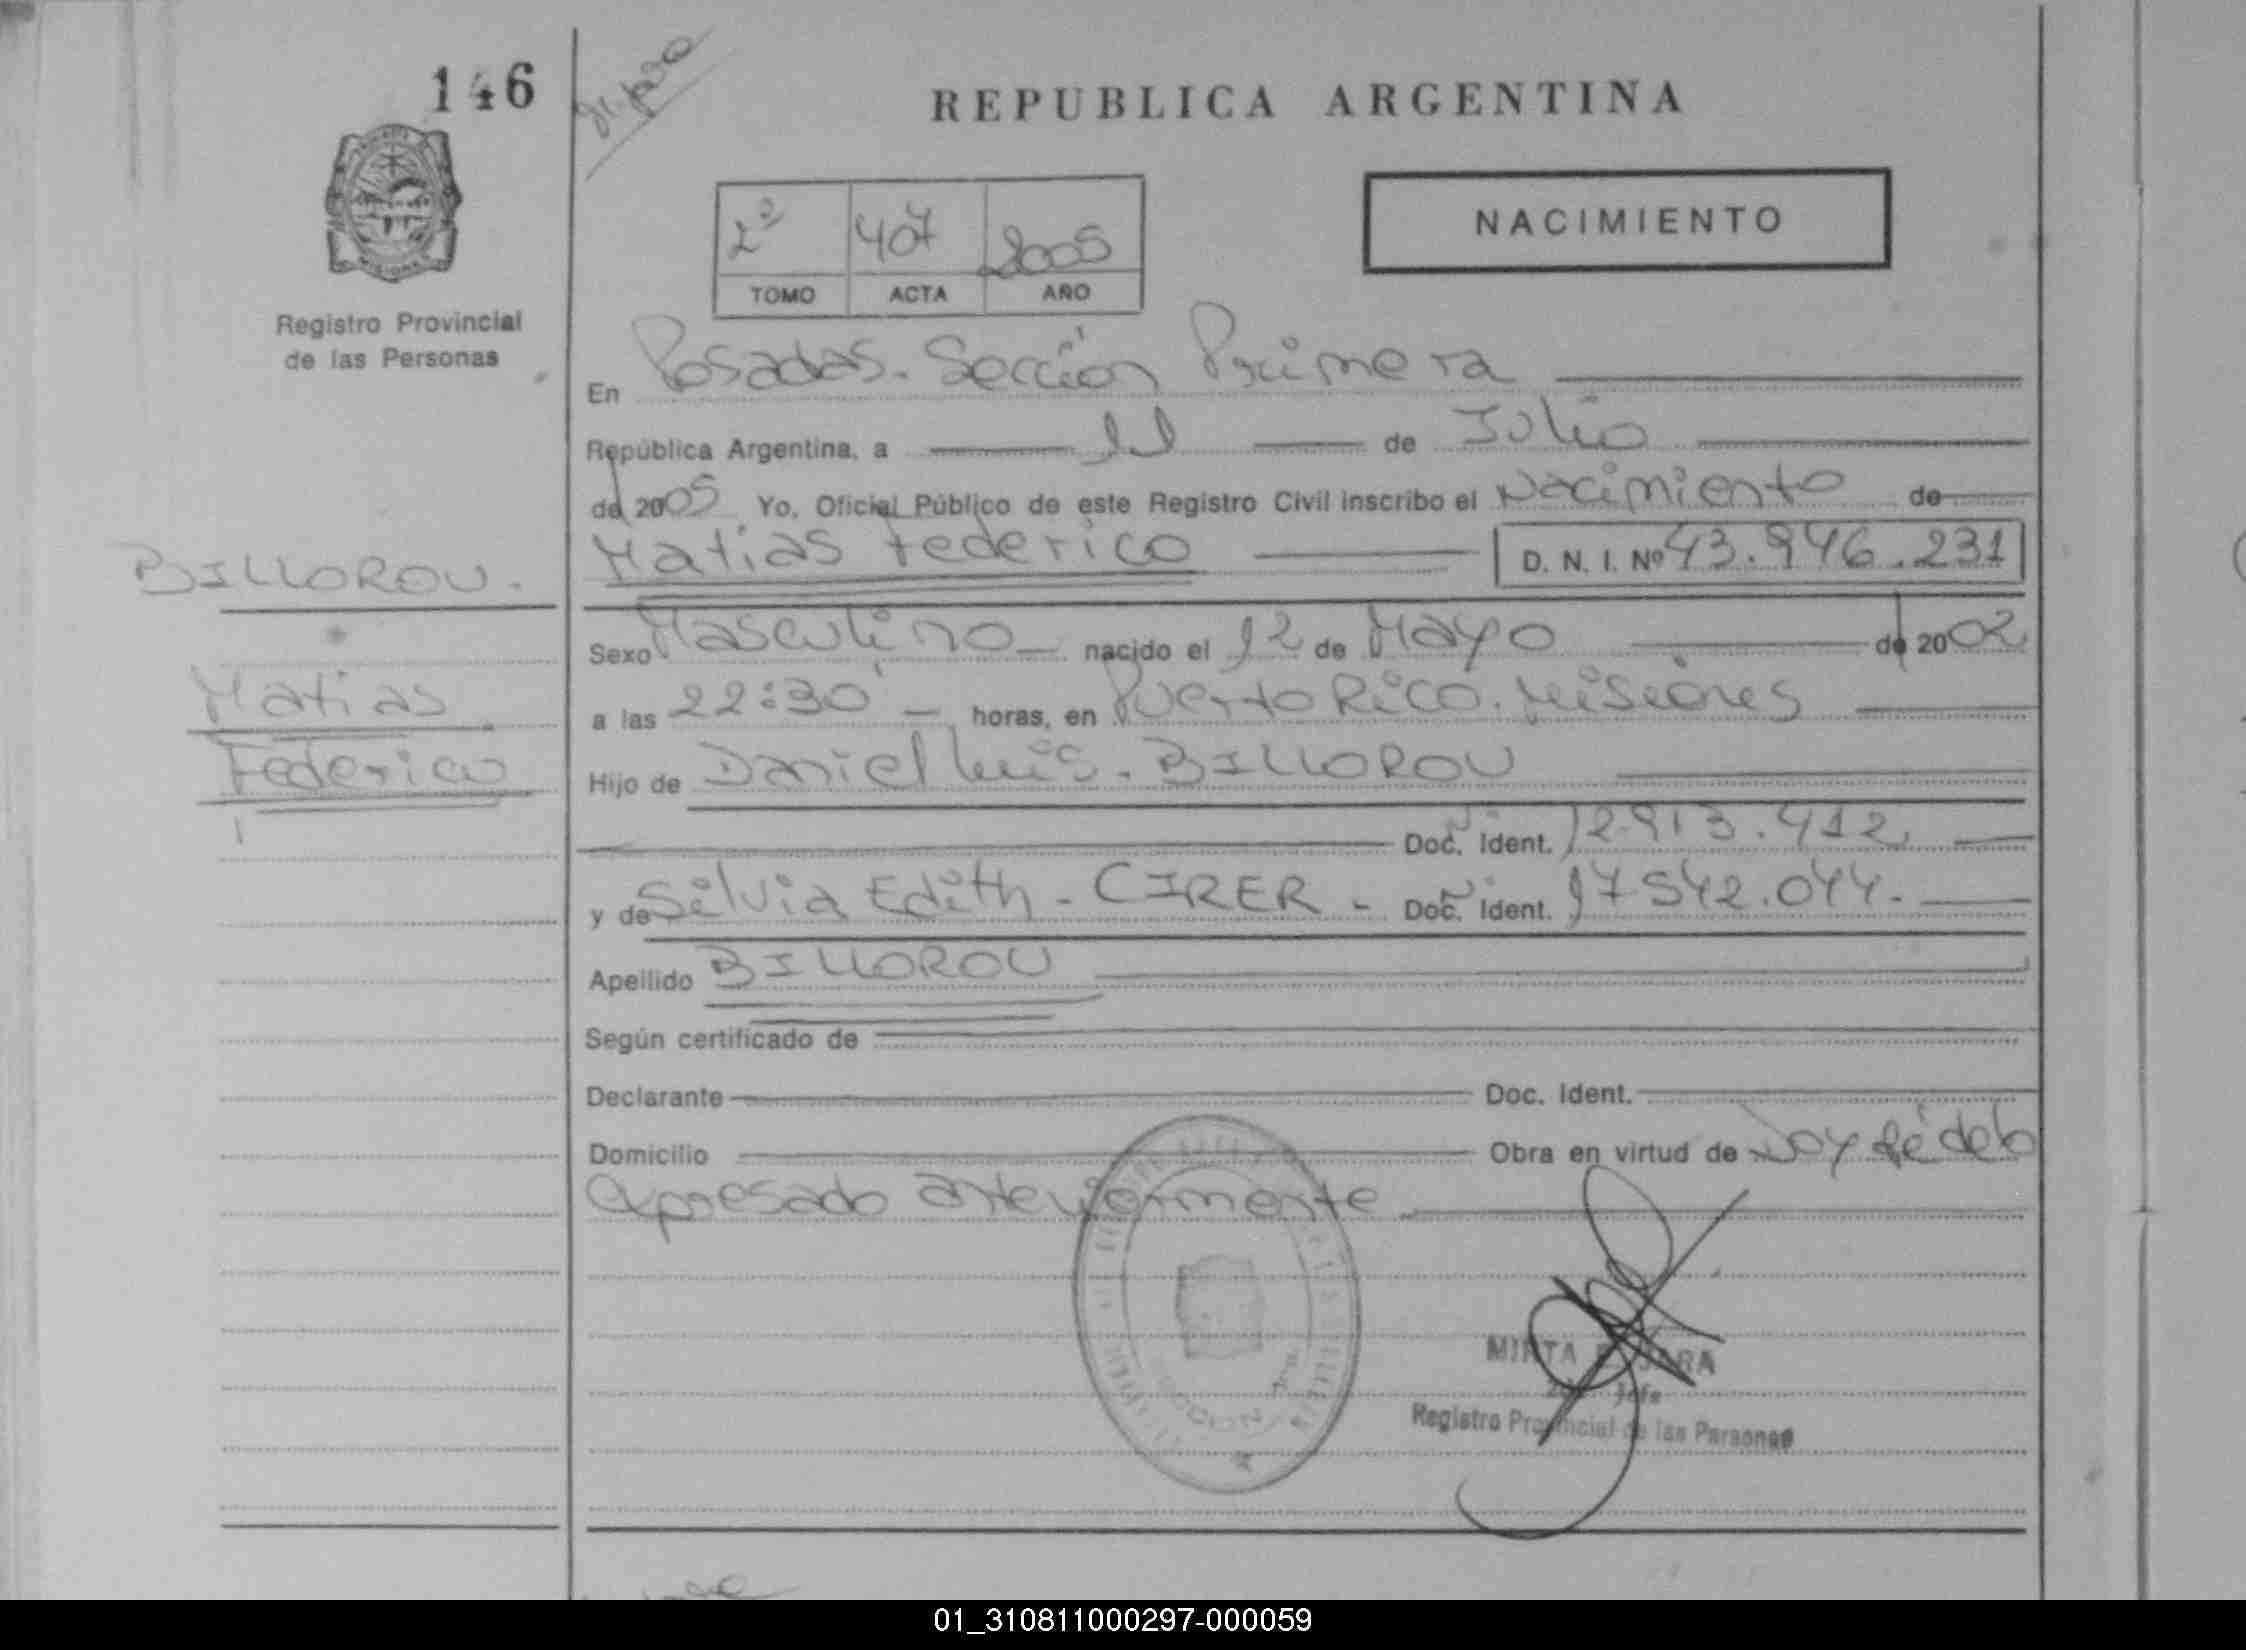 146
REPUBLICA ARGENTINA
2º 407 2005
TOMO ACTA AÑO
NACIMIENTO
Registro Provincial
de las Personas
En Posadas. Sección Primera
República Argentina, a 11 de Julio
de 2005 Yo, Oficial Público de este Registro Civil inscribo el Nacimiento de
Matias Federico D. N. I. Nº 43.946.231
BILLOROU.
Matias
Federico
Sexo Masculino nacido el 12 de Mayo de 2002
a las 22:30 horas, en Puerto Rico. Misiones
Hijo de Daniel Luis. BILLOROU
Doc. Ident. 12.913.412.
y de Silvia Edith - CIRER - Doc. Ident. 17.542.044.
Apellido BILLOROU
Según certificado de
Declarante Doc. Ident.
Domicilio Obra en virtud de Doy fé de lo
apresado anteriormente
MIRTA JARA
Jefe
Registro Provincial de las Personas
01_310811000297-000059